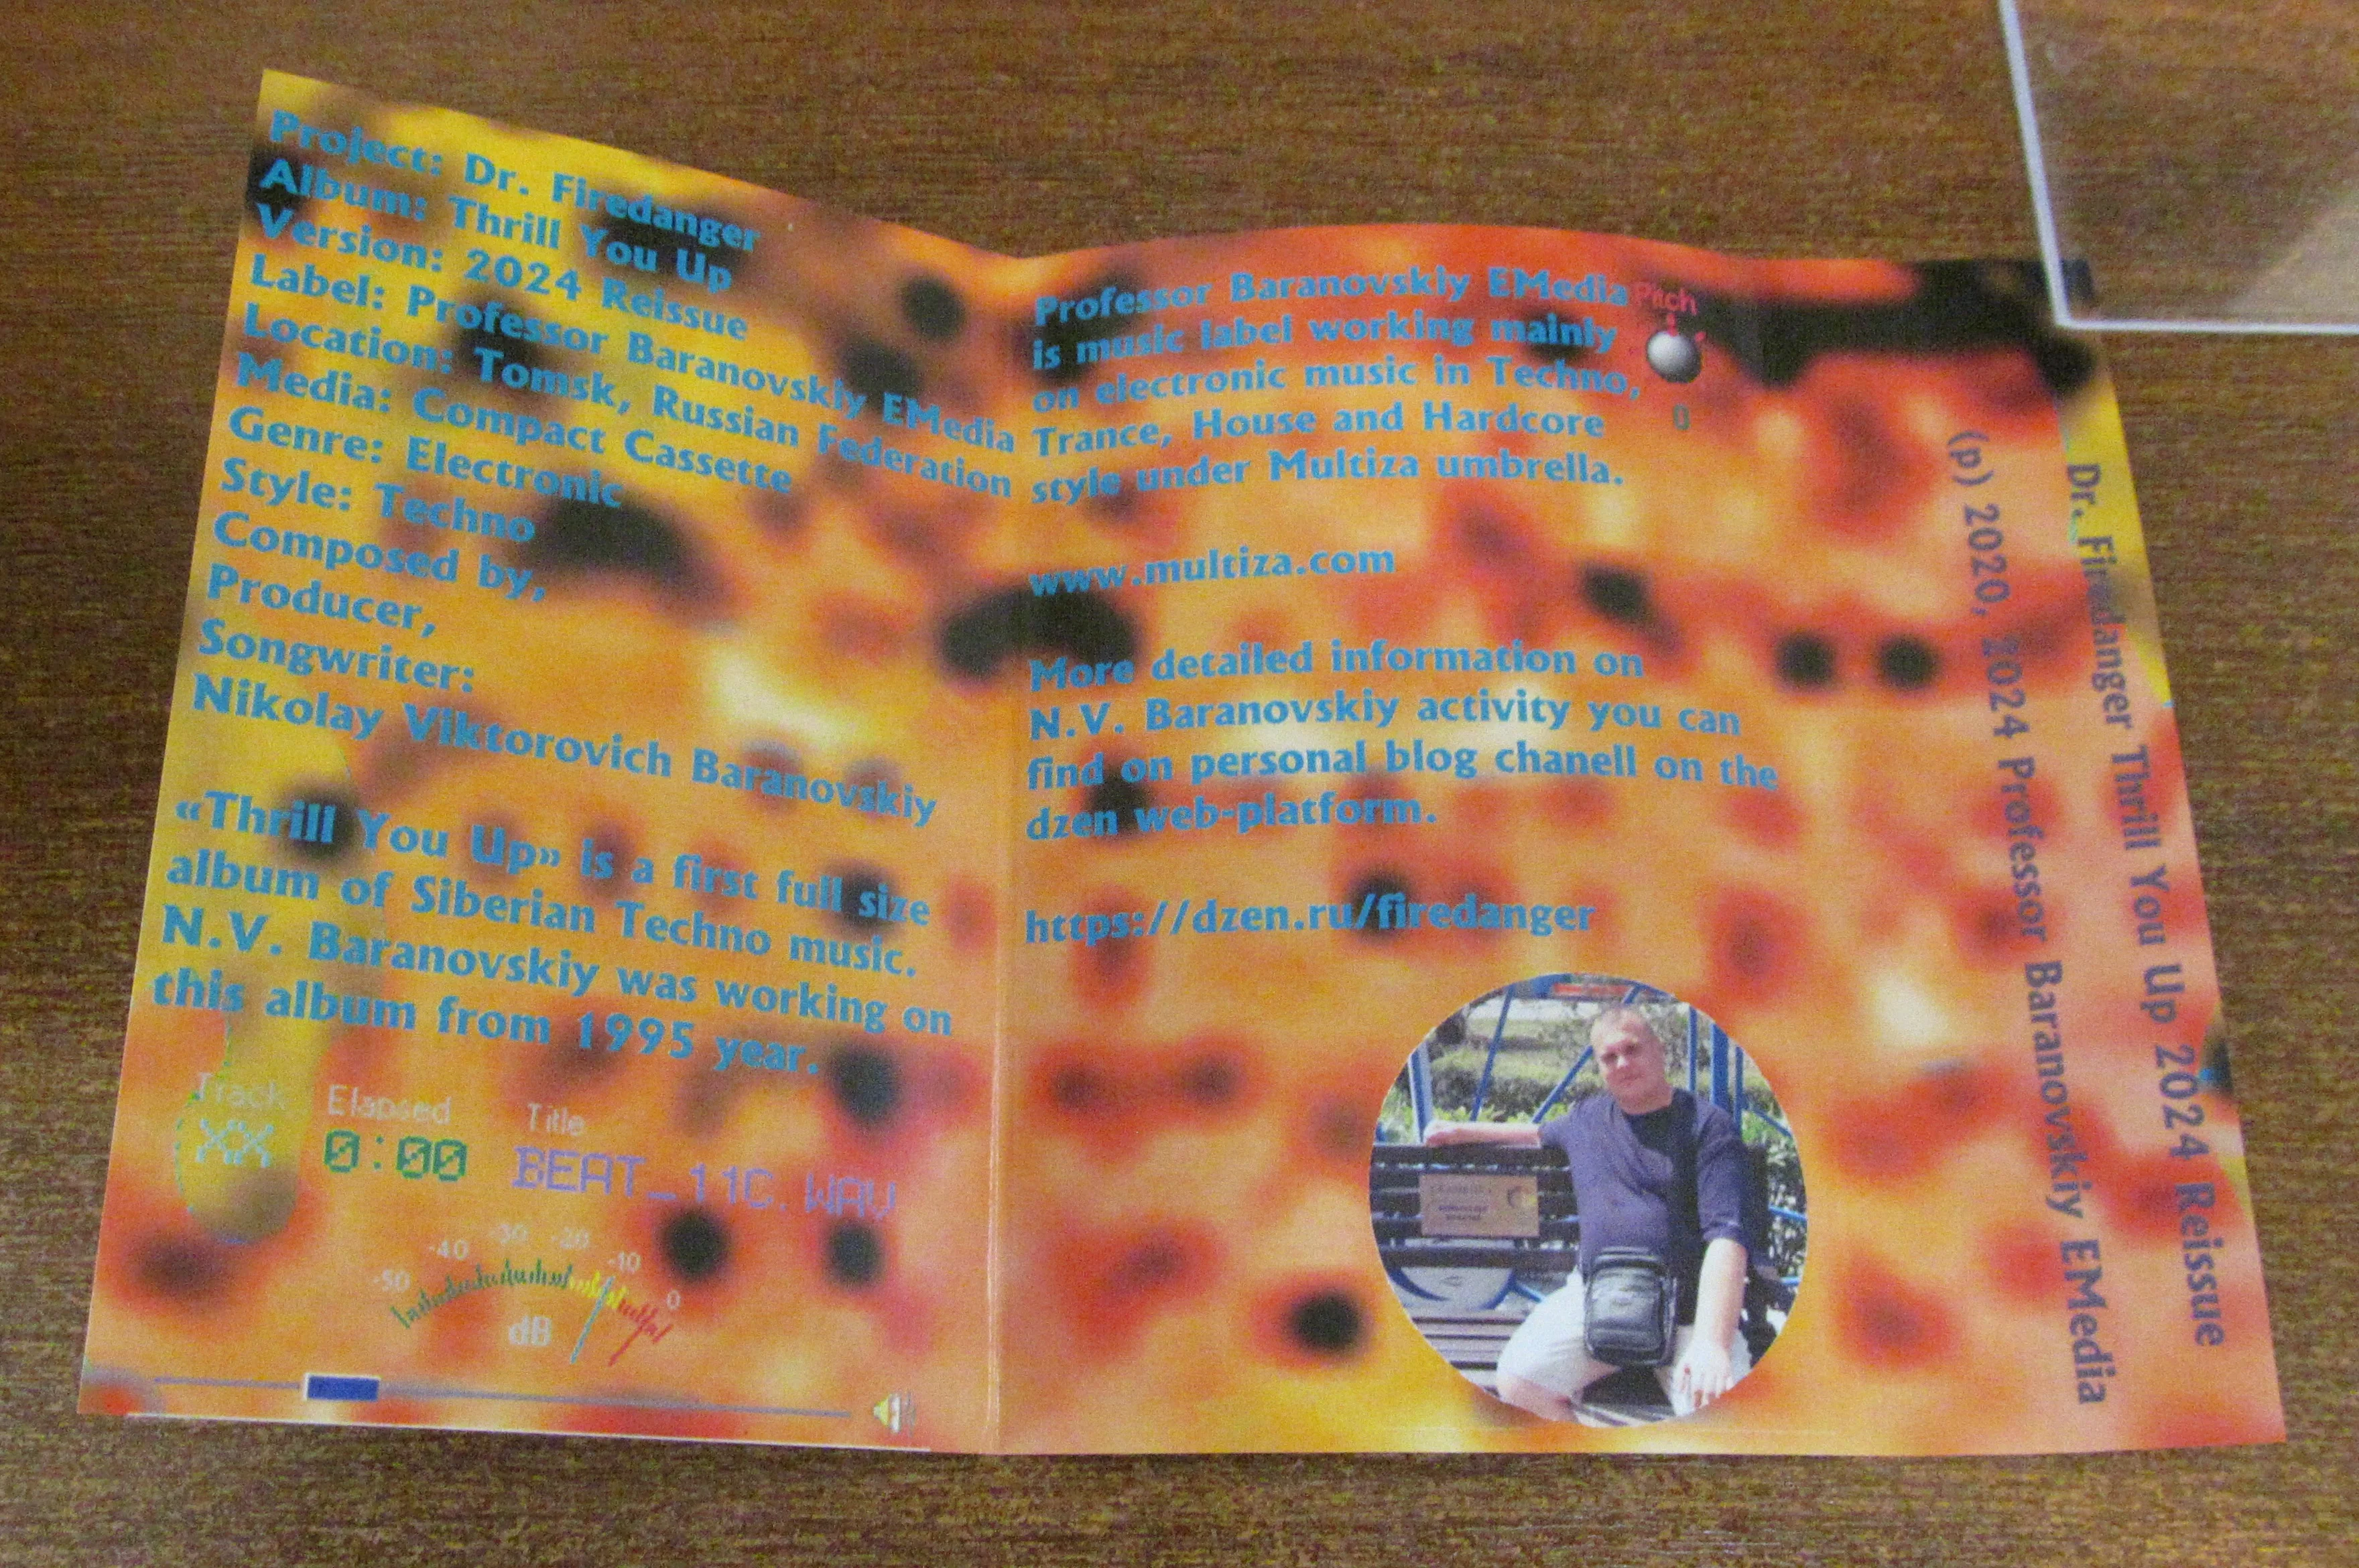 Project: Dr. Firedanger
Album: Thrill You Up
Version: 2024 Reissue
Label: Professor Baranovskiy EMedia
Location: Tomsk, Russian Federation
Media: Compact Cassette
Genre: Electronic
Style: Techno
Composed by,
Producer,
Songwriter:
Nikolay Viktorovich Baranovskiy
«Thrill You Up» is a first full size
album of Siberian Techno music.
N.V. Baranovskiy was working on
this album from 1995 year.
Track Elapsed Title
XX 0:00 BEAT_11C.WAV
-50 -40 -30 -20 -10 0
dB
Professor Baranovskiy EMedia
is music label working mainly
on electronic music in Techno,
Trance, House and Hardcore
style under Multiza umbrella.
Pitch
0
www.multiza.com
More detailed information on
N.V. Baranovskiy activity you can
find on personal blog chanell on the
dzen web-platform.
https://dzen.ru/firedanger
(p) 2020, 2024 Professor Baranovskiy EMedia
Dr. Firedanger Thrill You Up 2024 Reissue